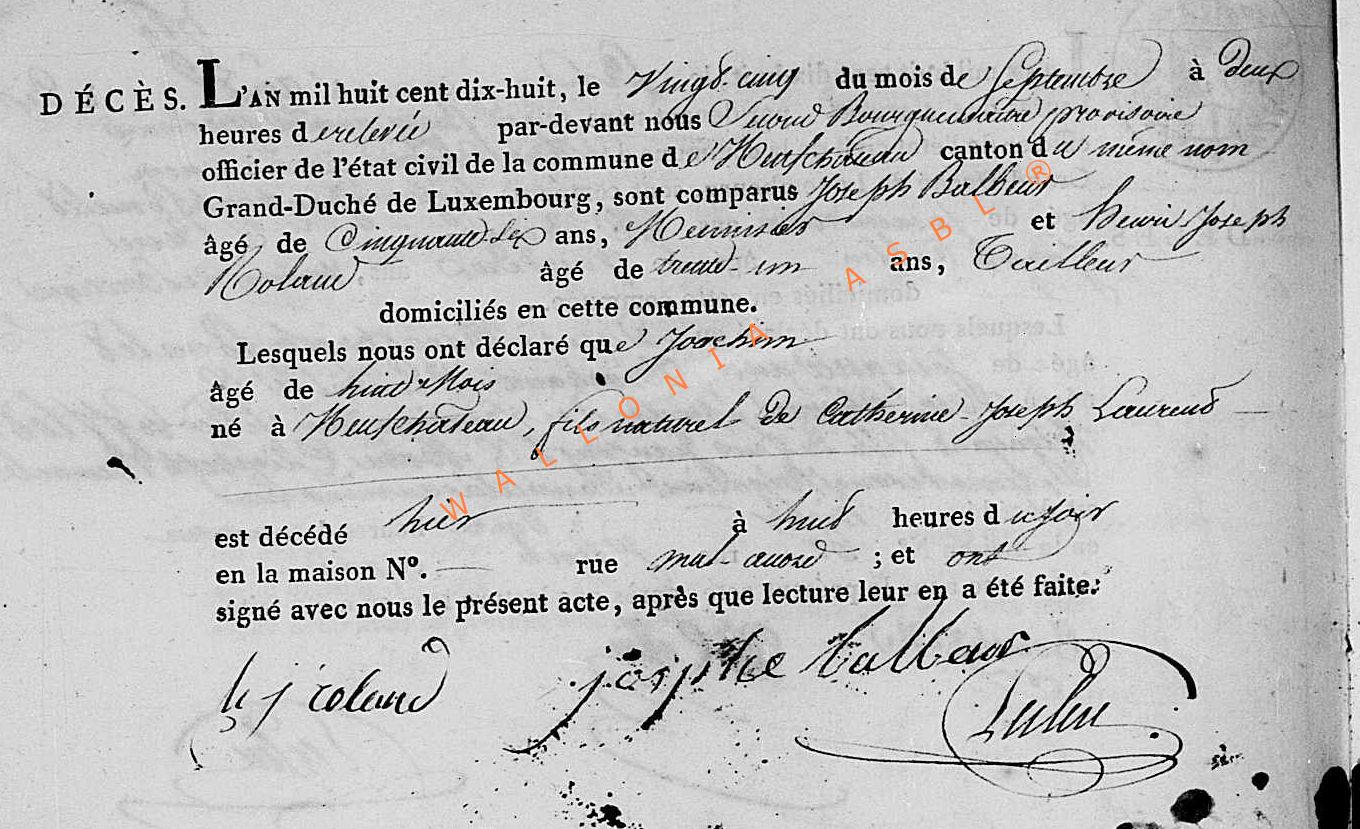 DÉCÈS. L'AN mil huit cent dix-huit, le Vingt-cinq du mois de Septembre à deux
heures de relevée par-devant nous Bourguemaitre provisoire
officier de l'état civil de la commune de Neufchâteau canton du même nom
Grand-Duché de Luxembourg, sont comparus Joseph Balbeur
âgé de Cinquante-six ans, Meunier et henri-Joseph
âgé de trente-un ans, Tailleur
domiciliés en cette commune.
Lesquels nous ont déclaré que Joachim
âgé de huit Mois
né à Neufchâteau, fils naturel de Catherine-Joseph Laurent
est décédé hier à huit heures du soir
en la maison N°. rue ; et ont
signé avec nous le présent acte, après que lecture leur en a été faite.
h j
josephe balbeur
WALLONIA ASBL®